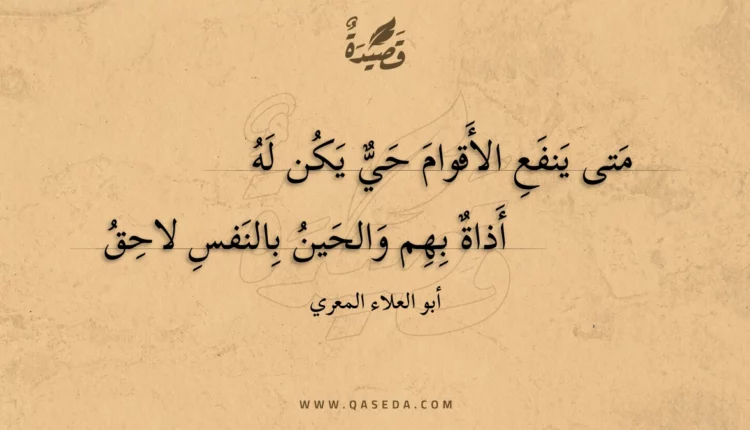 قَصِيْدَةٌ
مَتى يَنفَعِ الأَقوامَ حَيٌّ يَكُن لَهُ
أَذاةٌ بِهِم وَالحَينُ بِالنَفسِ لاحِقُ
أبو العلاء المعري
WWW.QASEDA.COM